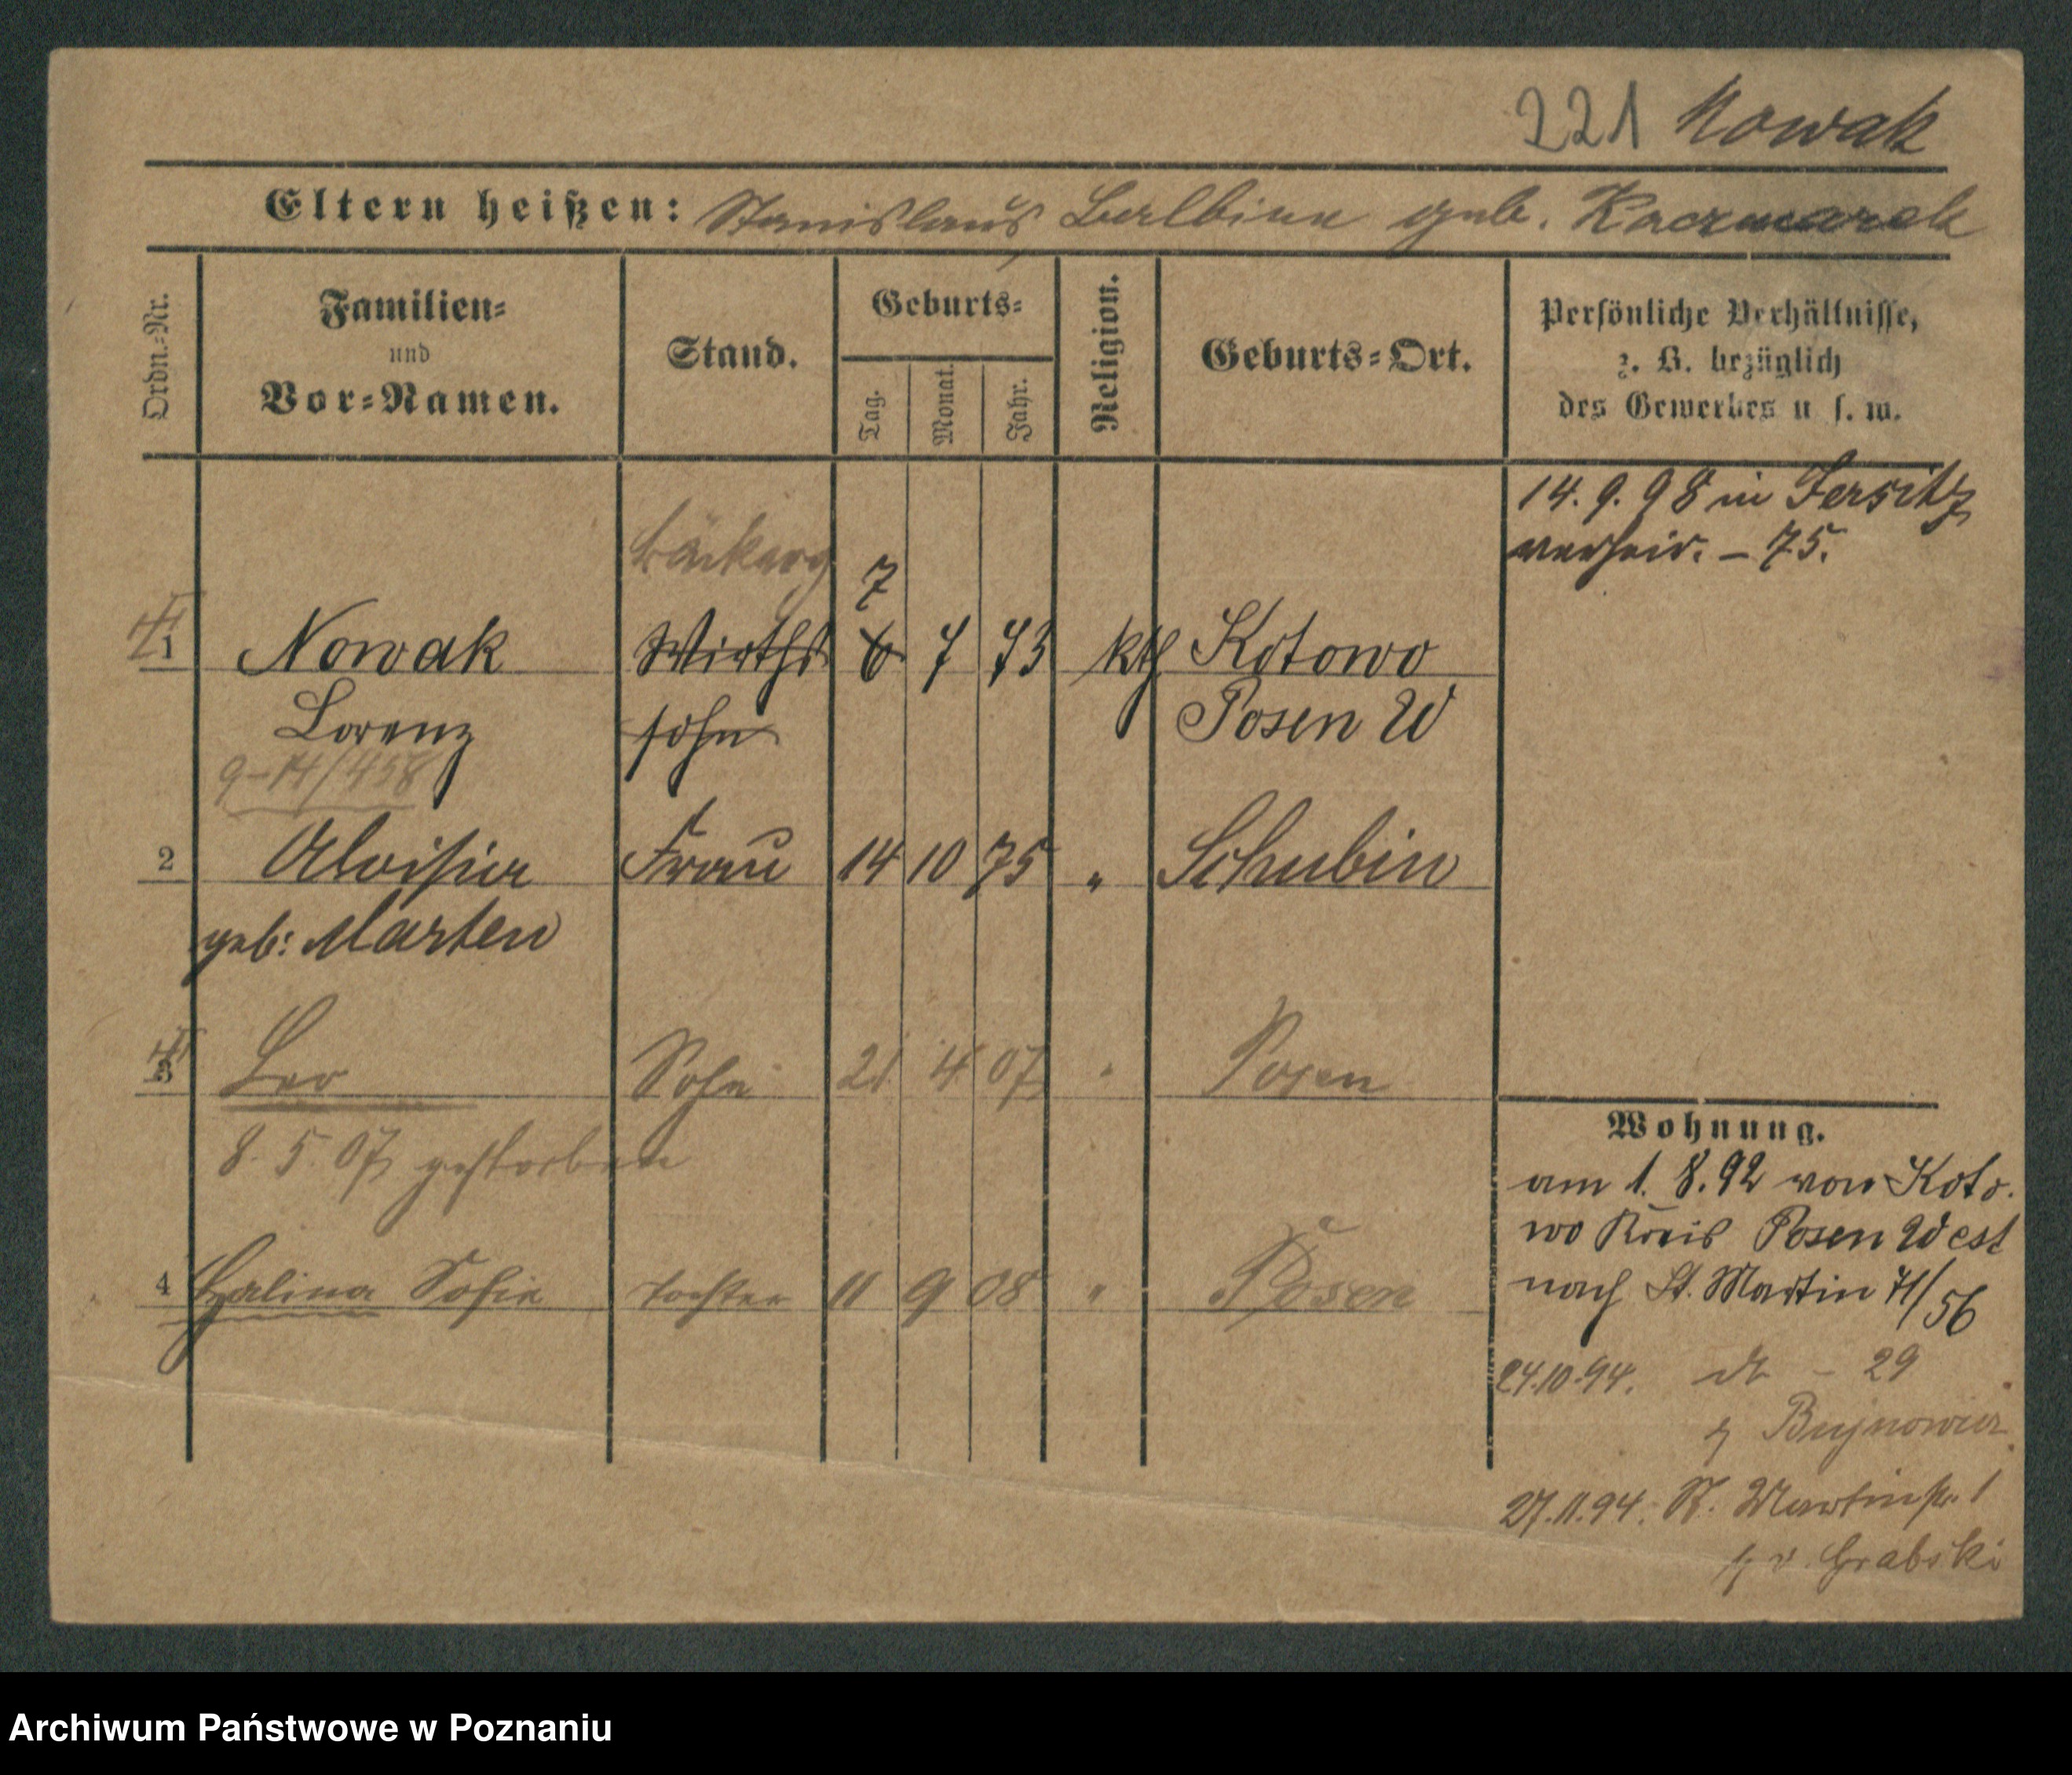 221 Nowak
Eltern heißen: Stanislaus, Balbina geb. Kaczmarek
Ordn.-Nr.
Familien-
und
Vor-Namen.
Stand.
Geburts-
Tag.
Monat.
Jahr.
Religion.
Geburts-Ort.
Persönliche Verhältnisse,
z. B. bezüglich
des Gewerbes u. s. w.
14. 9. 98 in Jersitz
verheir. – 75.
7
1 Nowak Wirths 6 7 73 kth Kotowo
Lorenz sohn Posen W
9-14/458
2 Aloisia Frau 14 10 75 " Schubin
geb: Marten
3 Leo Sohn 21 4 07 " Posen
8. 5. 07 gestorben
4 Halina Sofie Tochter 11 9 08 " Posen
Wohnung.
am 1. 8. 92 von Koto-
wo Kreis Posen West
nach St. Martin 71/56
24.10.94. – 29
27.11.94. St. Martinstr. 1
v. Grabski
Archiwum Państwowe w Poznaniu